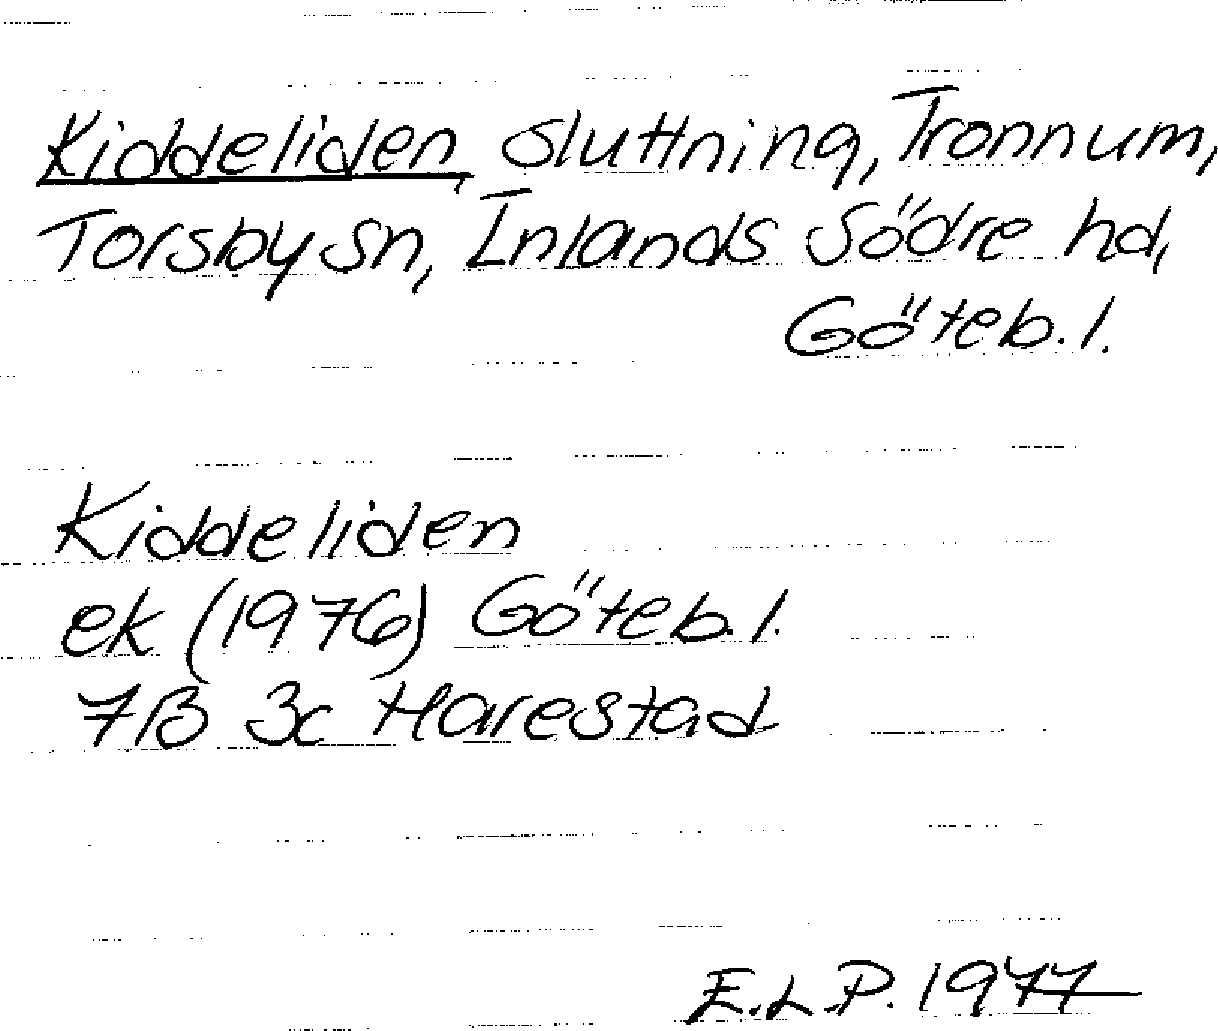 Kiddeliden, sluttning, Tronnum,
Torsby sn, Inlands Södre hd,
Göteb. l.
Kiddeliden
ek (1976) Göteb. l.
7B 3c Harestad
E.L.P. 1977